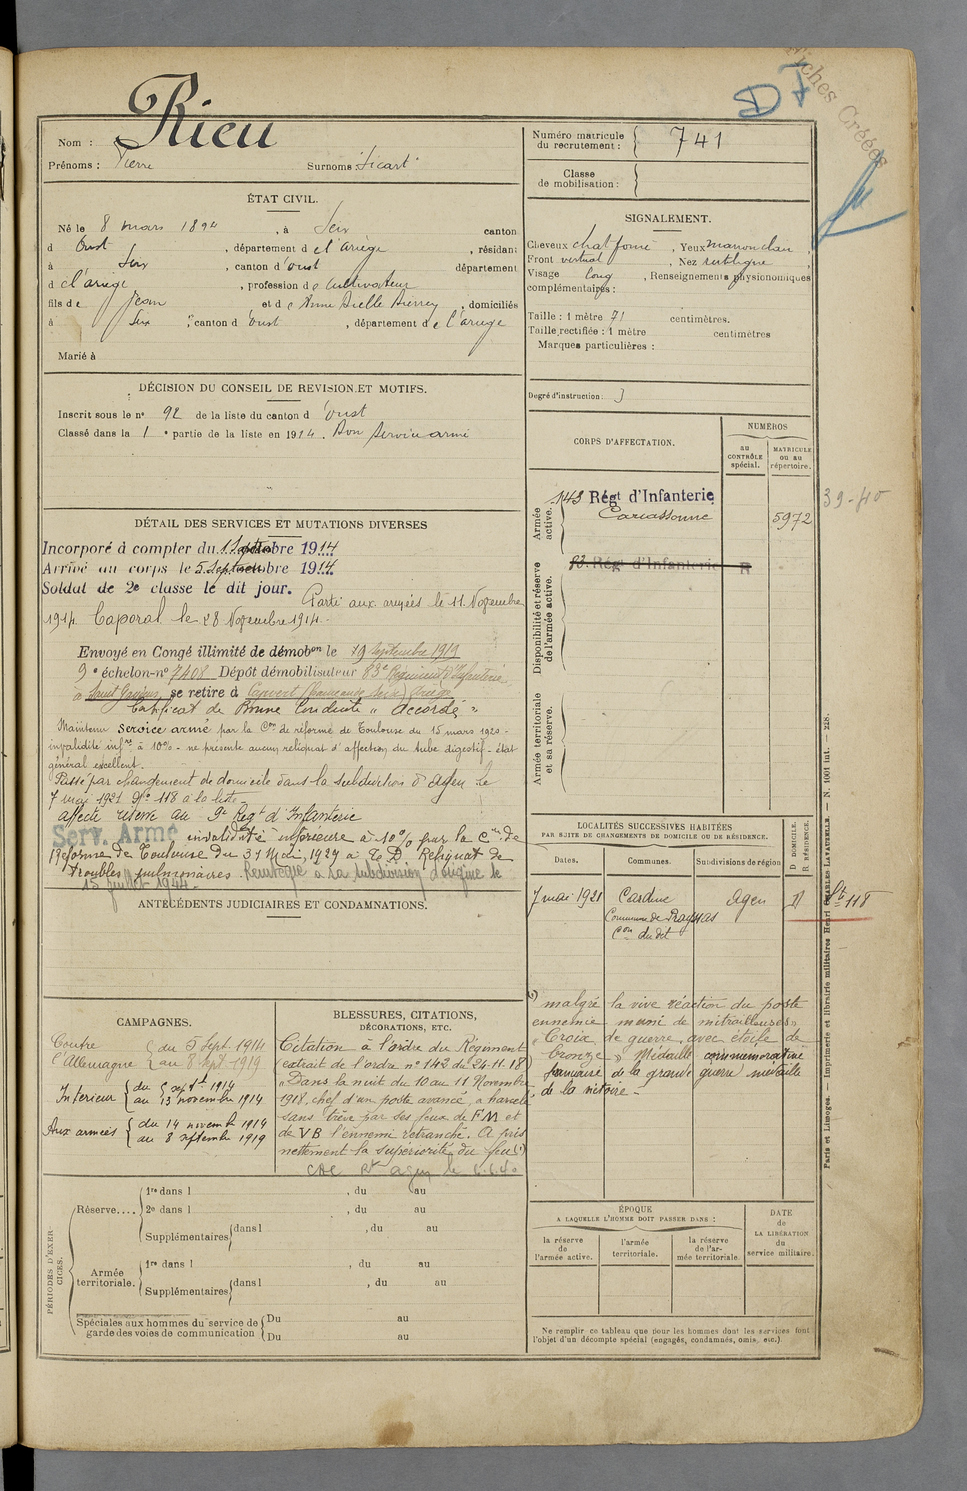 Fiches Créées
D
Rieu
Nom :
Prénoms : Pierre Surnoms : "Sicart"
Numéro matricule du recrutement : 741
Classe de mobilisation :
ÉTAT CIVIL.
Né le 8 mars 1894, à Seix canton
d'Oust, département de l'Ariège, résidant
à Seix, canton d'oust département
de l'ariège, profession de cultivateur
fils de Jean et de Anne, domiciliés
à Seix, canton d'oust, département de l'ariège
Marié à
SIGNALEMENT.
Cheveux chat foncé, Yeux marron clair,
Front vertical, Nez rectiligne,
Visage long, Renseignements physionomiques
complémentaires :
Taille : 1 mètre 71 centimètres.
Taille rectifiée : 1 mètre centimètres
Marques particulières :
Degré d'instruction : 3
DÉCISION DU CONSEIL DE REVISION ET MOTIFS.
Inscrit sous le no 92 de la liste du canton d'oust
Classé dans la 1e partie de la liste en 1914. Bon service armé
DÉTAIL DES SERVICES ET MUTATIONS DIVERSES
Incorporé à compter du 1 Septembre 1914
Arrivé au corps le 5 Septembre 1914
Soldat de 2e classe le dit jour. Parti aux armées le 11 Novembre
1914 Caporal le 28 Novembre 1914.
Envoyé en Congé illimité de démobon le 19 Septembre 1919
9e échelon-no 7408 Dépôt démobilisateur 83e Régiment d'Infanterie
à Saint Gaudens se retire à Seix Ariège
Certificat de Bonne Conduite "Accordé"
Maintenu Service armé par la Con de réforme de Toulouse du 15 mars 1920 -
invalidité infre à 10% - ne présente aucun reliquat d'affection du tube digestif - état
général excellent.
Passé par changement de domicile dans la subdivision d'Agen le
7 mai 1921 No 118 à la liste
affecté réserve au 9e Regt d'Infanterie
Serv. Armé invalidité inférieure à 10% par la Con de
Réforme de Toulouse du 31 Mai 1927 à T. D. Reliquat de
troubles pulmonaires. Réintégré à la subdivision d'origine le
15 juillet 1944.
CORPS D'AFFECTATION.
NUMÉROS
au CONTRÔLE spécial.
MATRICULE ou au répertoire.
Armée active.
143 Régt d'Infanterie
Carcassonne
5972
39-40
Disponibilité et réserve de l'armée active.
Régt d'Infanterie R
Armée territoriale et sa réserve.
ANTÉCÉDENTS JUDICIAIRES ET CONDAMNATIONS.
LOCALITÉS SUCCESSIVES HABITÉES
PAR SUITE DE CHANGEMENTS DE DOMICILE OU DE RÉSIDENCE.
Dates. Communes. Subdivisions de région
D. DOMICILE. R. RÉSIDENCE.
7 mai 1921 Agen D 118
Commune de Prayssas
Con du dit
CAMPAGNES.
Contre l'Allemagne
du 5 Sept. 1914
au 8 Sept. 1919
Intérieur
du 5 sept 1914
au 13 novembre 1914
Aux armées
du 14 novemb 1914
au 8 septembre 1919
BLESSURES, CITATIONS,
DÉCORATIONS, ETC.
Citation à l'ordre du Régiment
(extrait de l'ordre no 142 du 24.11.18)
"Dans la nuit du 10 au 11 Novembre
1918, chef d'un poste avancé, a harcelé
sans trêve par ses feux de FM et
de VB l'ennemi retranché. A pris
nettement la supériorité du feu (1)
(1) malgré la vive réaction du poste
ennemie muni de mitrailleuses"
"Croix de guerre avec étoile de
bronze" Médaille commémorative
française de la grande guerre médaille
de la victoire -
PÉRIODES D'EXERCICES.
Réserve....
1re dans l , du au
2e dans l , du au
Supplémentaires dans l , du au
Armée territoriale.
1re dans l , du au
Supplémentaires dans l , du au
Spéciales aux hommes du service de garde des voies de communication
Du au
Du au
ÉPOQUE
A LAQUELLE L'HOMME DOIT PASSER DANS :
la réserve de l'armée active.
l'armée territoriale.
la réserve de l'armée territoriale.
DATE de LA LIBÉRATION du service militaire.
Ne remplir ce tableau que pour les hommes dont les services font
l'objet d'un décompte spécial (engagés, condamnés, omis, etc.).
Paris et Limoges. — Imprimerie et librairie militaires Henri CHARLES-LAVAUZELLE. — N. 1001 int. — 228.